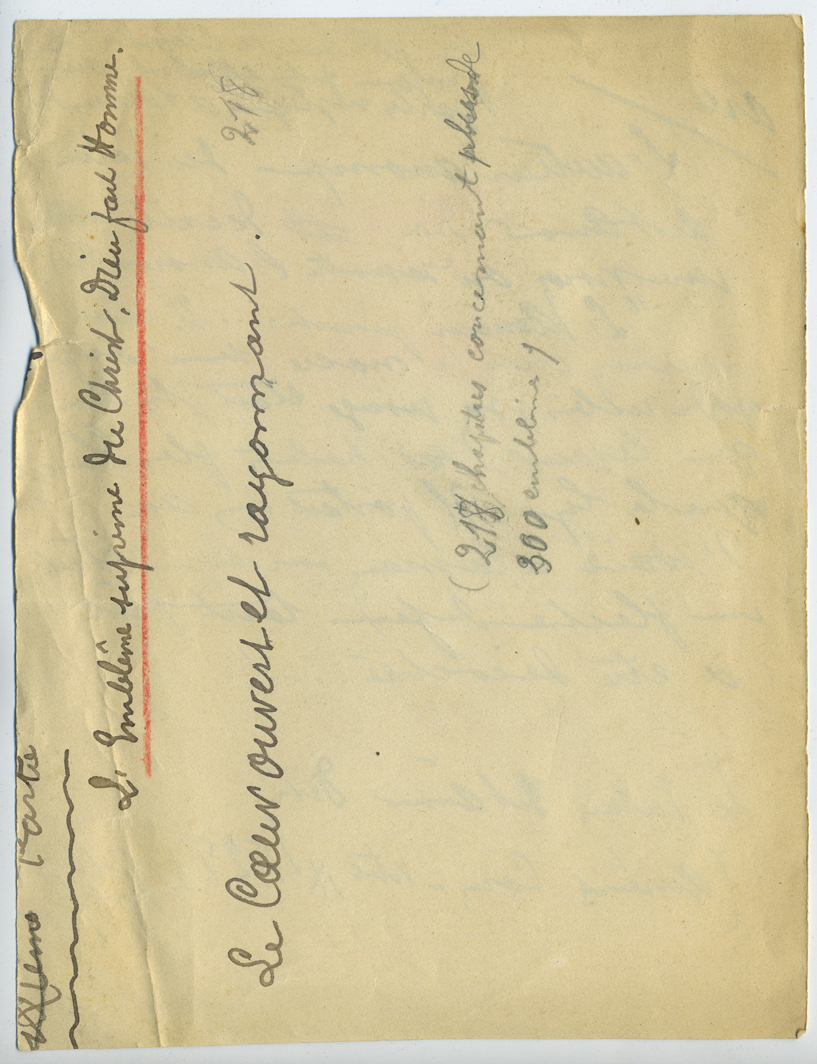 Partie
L'Emblême suprême du Christ, Dieu fait Homme.
218
Le Cœur ouvert et rayonnant.
(218 chapitres concernant plus de
300 emblêmes)